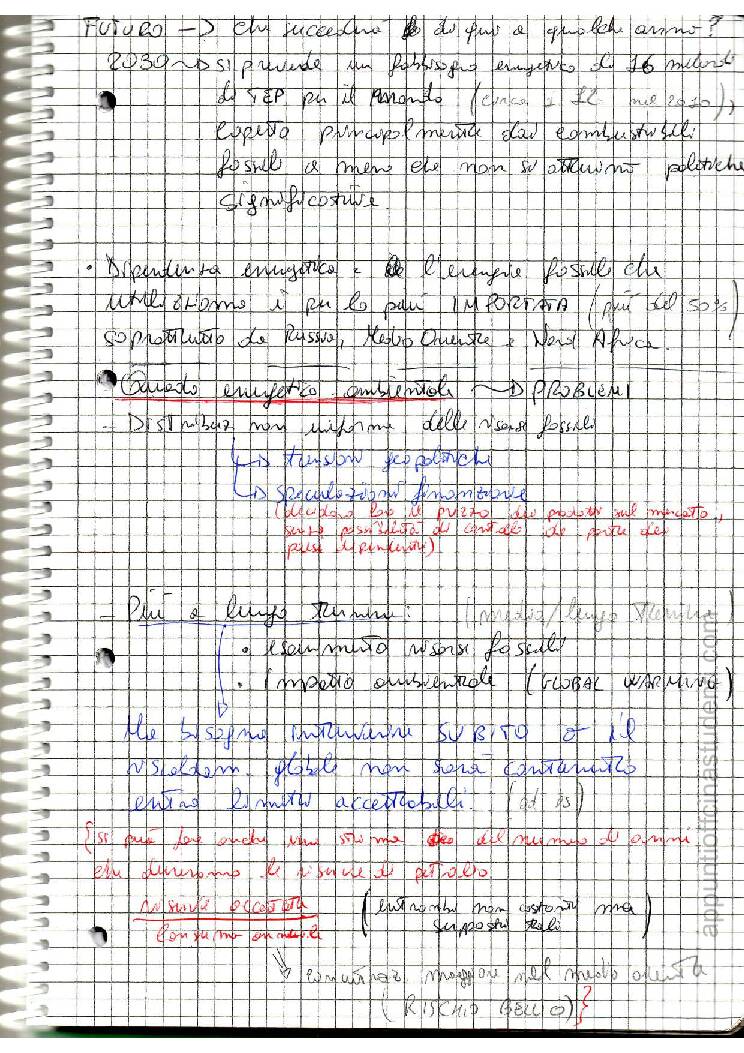 FUTURO -> Che succederà di qui a qualche anno?
2030 -> si prevede un fabbisogno energetico di 16 miliardi
di TEP per il mondo (circa 12 nel 2010),
coperto principalmente dai combustibili
fossili a meno che non si attuino politiche
significative
• Dipendenza energetica e l'energia fossile che
utilizziamo è per lo più IMPORTATA (più del 50%)
soprattutto da Russia, Medio Oriente e Nord Africa.
Quadro energetico ambientale -> PROBLEMI
- Distribuz non uniforme delle risorse fossili
-> tensioni geopolitiche
-> speculazioni finanziarie
(decidono loro il prezzo dei prodotti sul mercato,
senza possibilità di controllo da parte dei
paesi dipendenti)
- Più a lungo termine: (medio/lungo termine)
• esaurimento risorse fossili
• impatto ambientale (GLOBAL WARMING)
Ma bisogna intervenire SUBITO o il
riscaldam. globale non sarà contenuto
entro limiti accettabili. (ad es)
{si può fare anche una stima del numero di anni
che dureranno le riserve di petrolio
riserve accertate (entrambi non costanti ma
consumo annuale supposti tali)
concentraz. maggiore nel medio oriente
(RISCHIO BELLICO)}
appuntiofficinastudenti.com